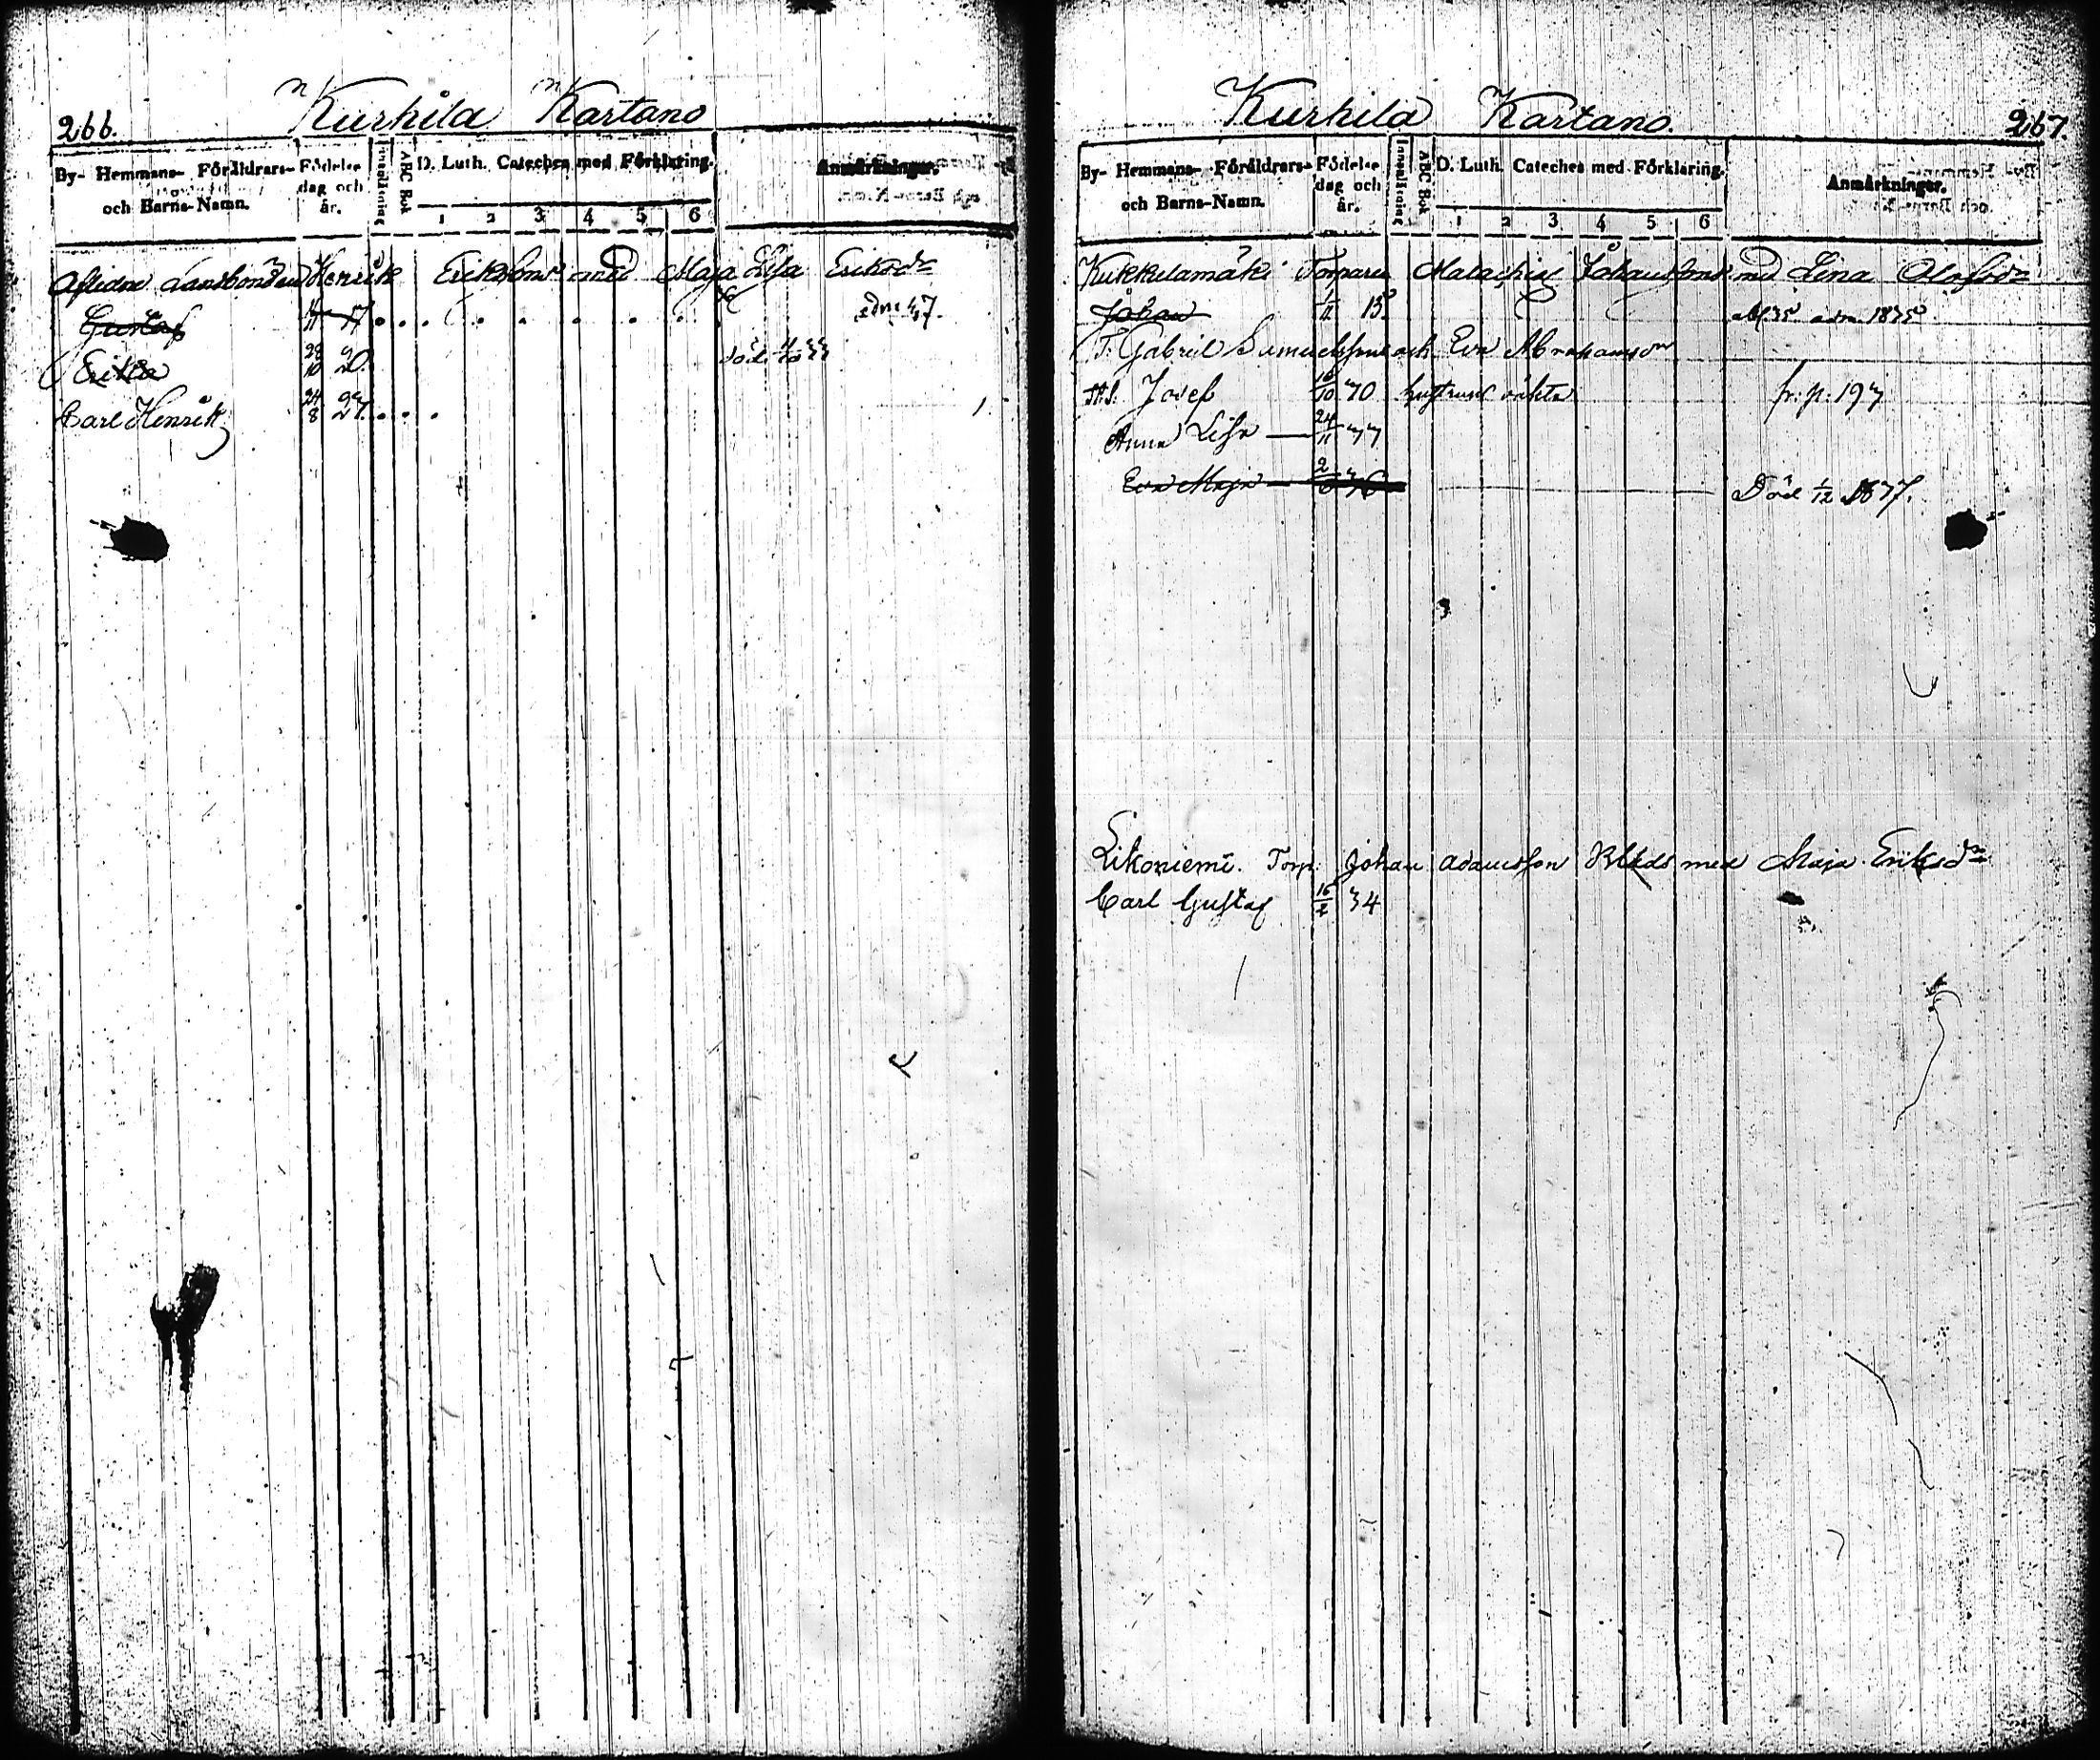 266.
Kurhila Kartano
By- Hemmans- Föräldrars- och Barns-Namn.
Födelse dag och år.
Innanläsning
ABC Bok
D. Luth. Cateches med Förklaring.
1 2 3 4 5 6
Anmärkningar.
Aflidne Landbonden Henrik Eriksons med Maja Lisa Eriksdr
Gustaf 17 adm. 37.
Erika 28/10 20. död 33
Carl Henrik 24/8 27.
Kurhila Kartano.
267.
By- Hemmans- Föräldrars- och Barns-Namn.
Födelse dag och år.
Innanläsning
ABC Bok
D. Luth. Cateches med Förklaring.
1 2 3 4 5 6
Anmärkningar.
Kukkelamäki Torpare Malachias Johanssons med Lena Olofsdr
Johan 1/11 15 adm. 1835
T. Gabriel Samuelsson och Eva Abrahamsdr
Josef 16/10 70 hustruns fr. p. 197
Anna Lisa 24/11 77
Eva Maja 2/6 76 Död 1/12 1877.
Likoniemi. Torp. Johan Adamsson med Maja Eriksdr
Carl Gustaf 16/2 34